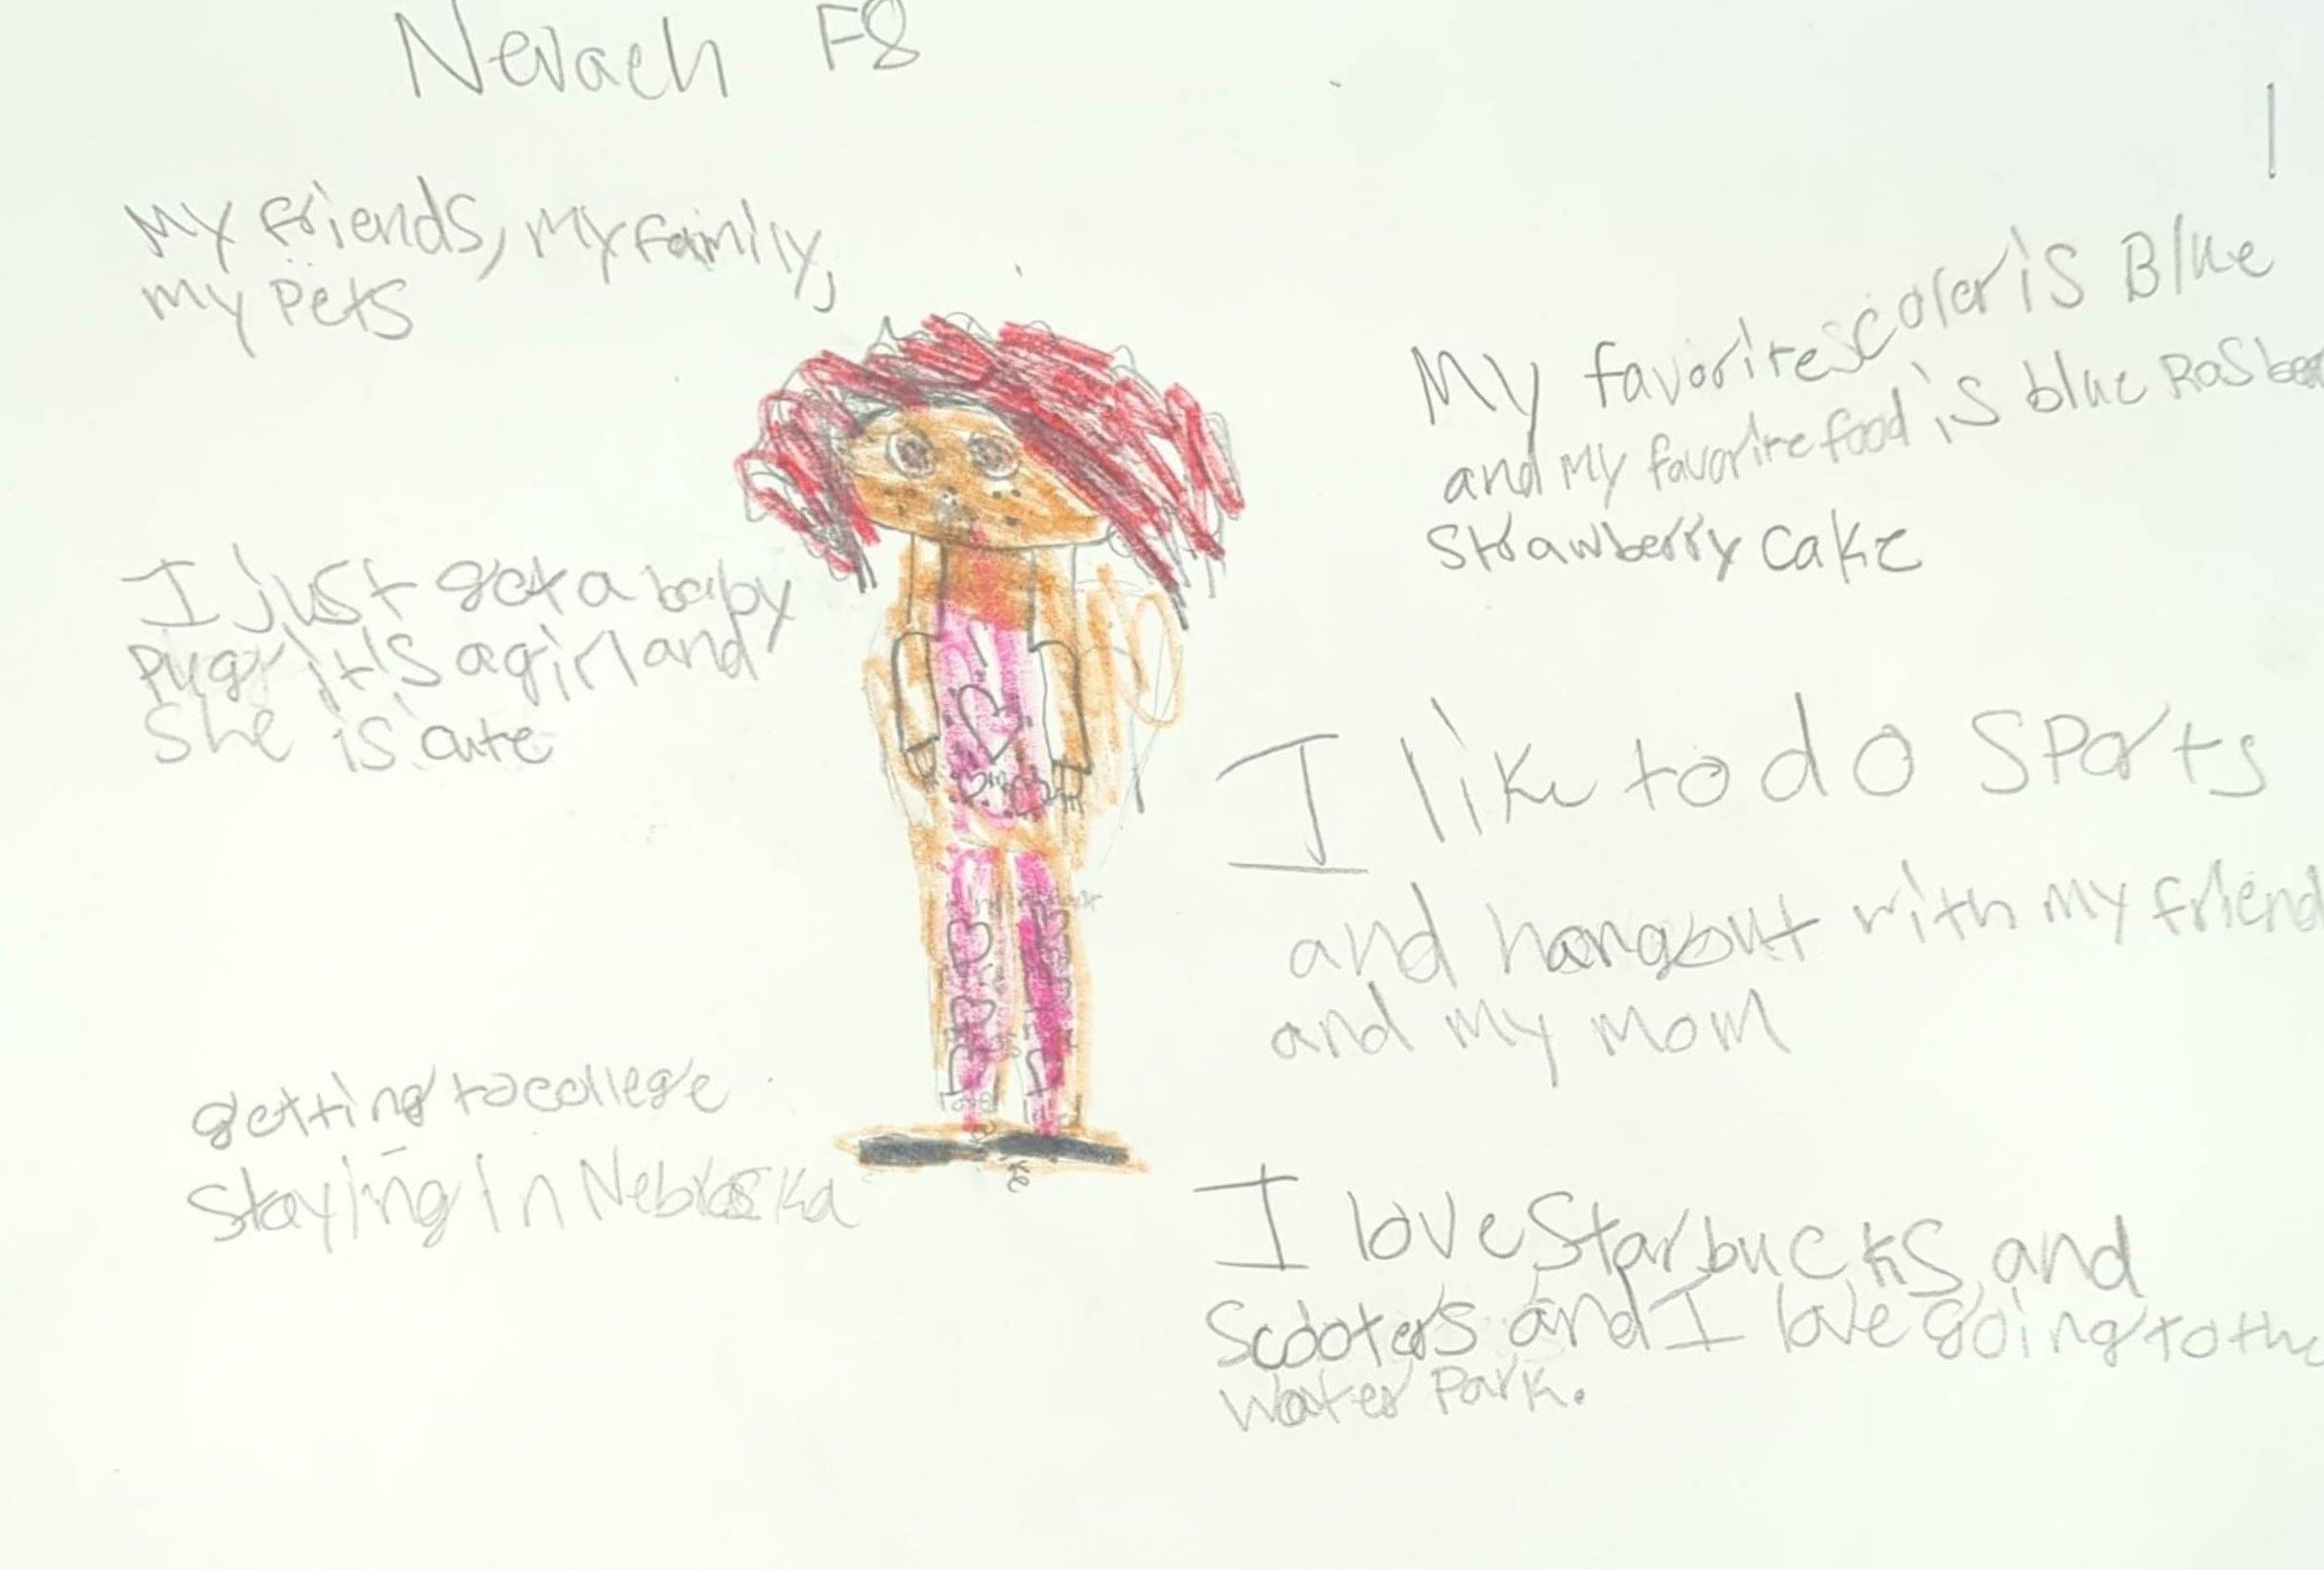 Nevaeh F8
My friends, my family,
my Pets
My favorite coler is Blue
and my favorite food is blue Rasber
Strawberry cake
I just got a baby
pug it's a girl and
She is cute
I like to do Sports
and hangout with my friend
and my mom
getting to college
Staying in Nebraska
I love Starbucks and
Scooters and I love going to the
water Park.